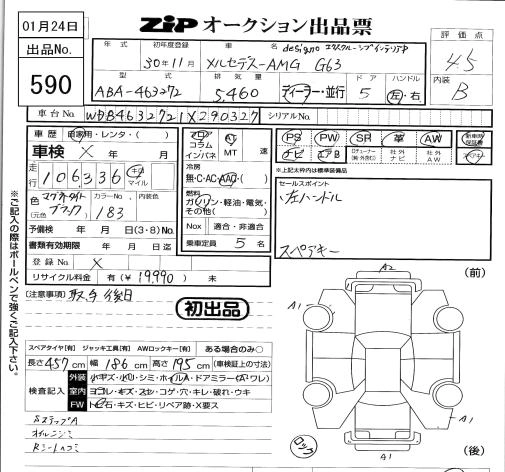 01月24日
ZiP オークション出品票
出品No.
590
評価点
4.5
内装
B
年式
初年度登録
車名
30年11月
メルセデスーAMG G63
型式
排気量
ドア
ハンドル
ABA-463272
5,460
ディーラー・並行
5
左・右
車台No.
WDB4632721X290327
シリアルNo.
車歴
自家用・レンタ・( )
車検 X 年 月
走行
106,336
キロ
マイル
色
マグネタイト
ブラック
(元色 )
カラーNo.
183
内装色
予備検 年 月 日(3・8)
書類有効期限 年 月 日迄
登録No.
X
リサイクル料金 有(¥ 19,990 ) 未
フロア
コラム
インパネ
AT
MT
速
冷房
無・C・AC・AAC・( )
燃料
ガソリン・軽油・電気・
その他( )
Nox
適合・非適合
乗車定員 5 名
PS
PW
SR
革
AW
新車時保証書
ナビ
エアB
社外ナビ
社外AW
スペアキー
※上記太枠内は標準装備品
セールスポイント
左ハンドル
スペアキー
[注意事項]
取令 後日
初出品
スペアタイヤ[有] ジャッキ工具[有] AWロックキー[有]
ある場合のみ○
長さ 457 cm 幅 186 cm 高さ 195 cm (車検証上の寸法)
検査記入
外装
室内
FW
ヨゴレ・キズ・スレ・コゲ・穴・キレ・破れ・ウキ
トビ石・キズ・ヒビ・リペア跡・X要ス
SステップA
Rシートコミ
※ご記入の際はボールペンで強くご記入下さい。
(前)
A2
A1
A1
A1
A1
ロック
(後)